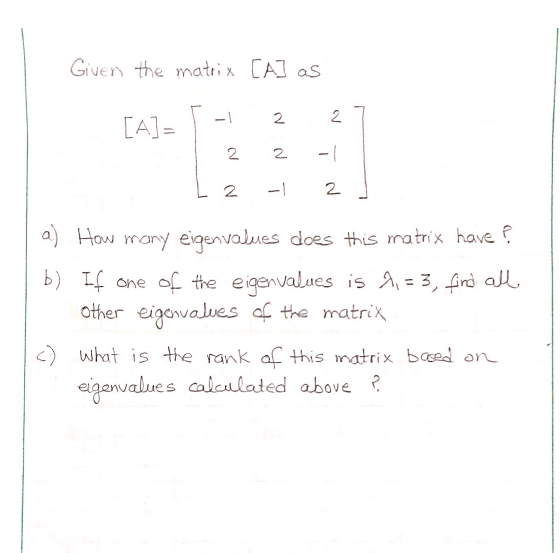 Given the matrix [A] as
[A] = [ -1 2 2
2 2 -1
2 -1 2 ]
a) How many eigenvalues does this matrix have ?
b) If one of the eigenvalues is λ₁ = 3, find all
other eigenvalues of the matrix
c) What is the rank of this matrix based on
eigenvalues calculated above ?